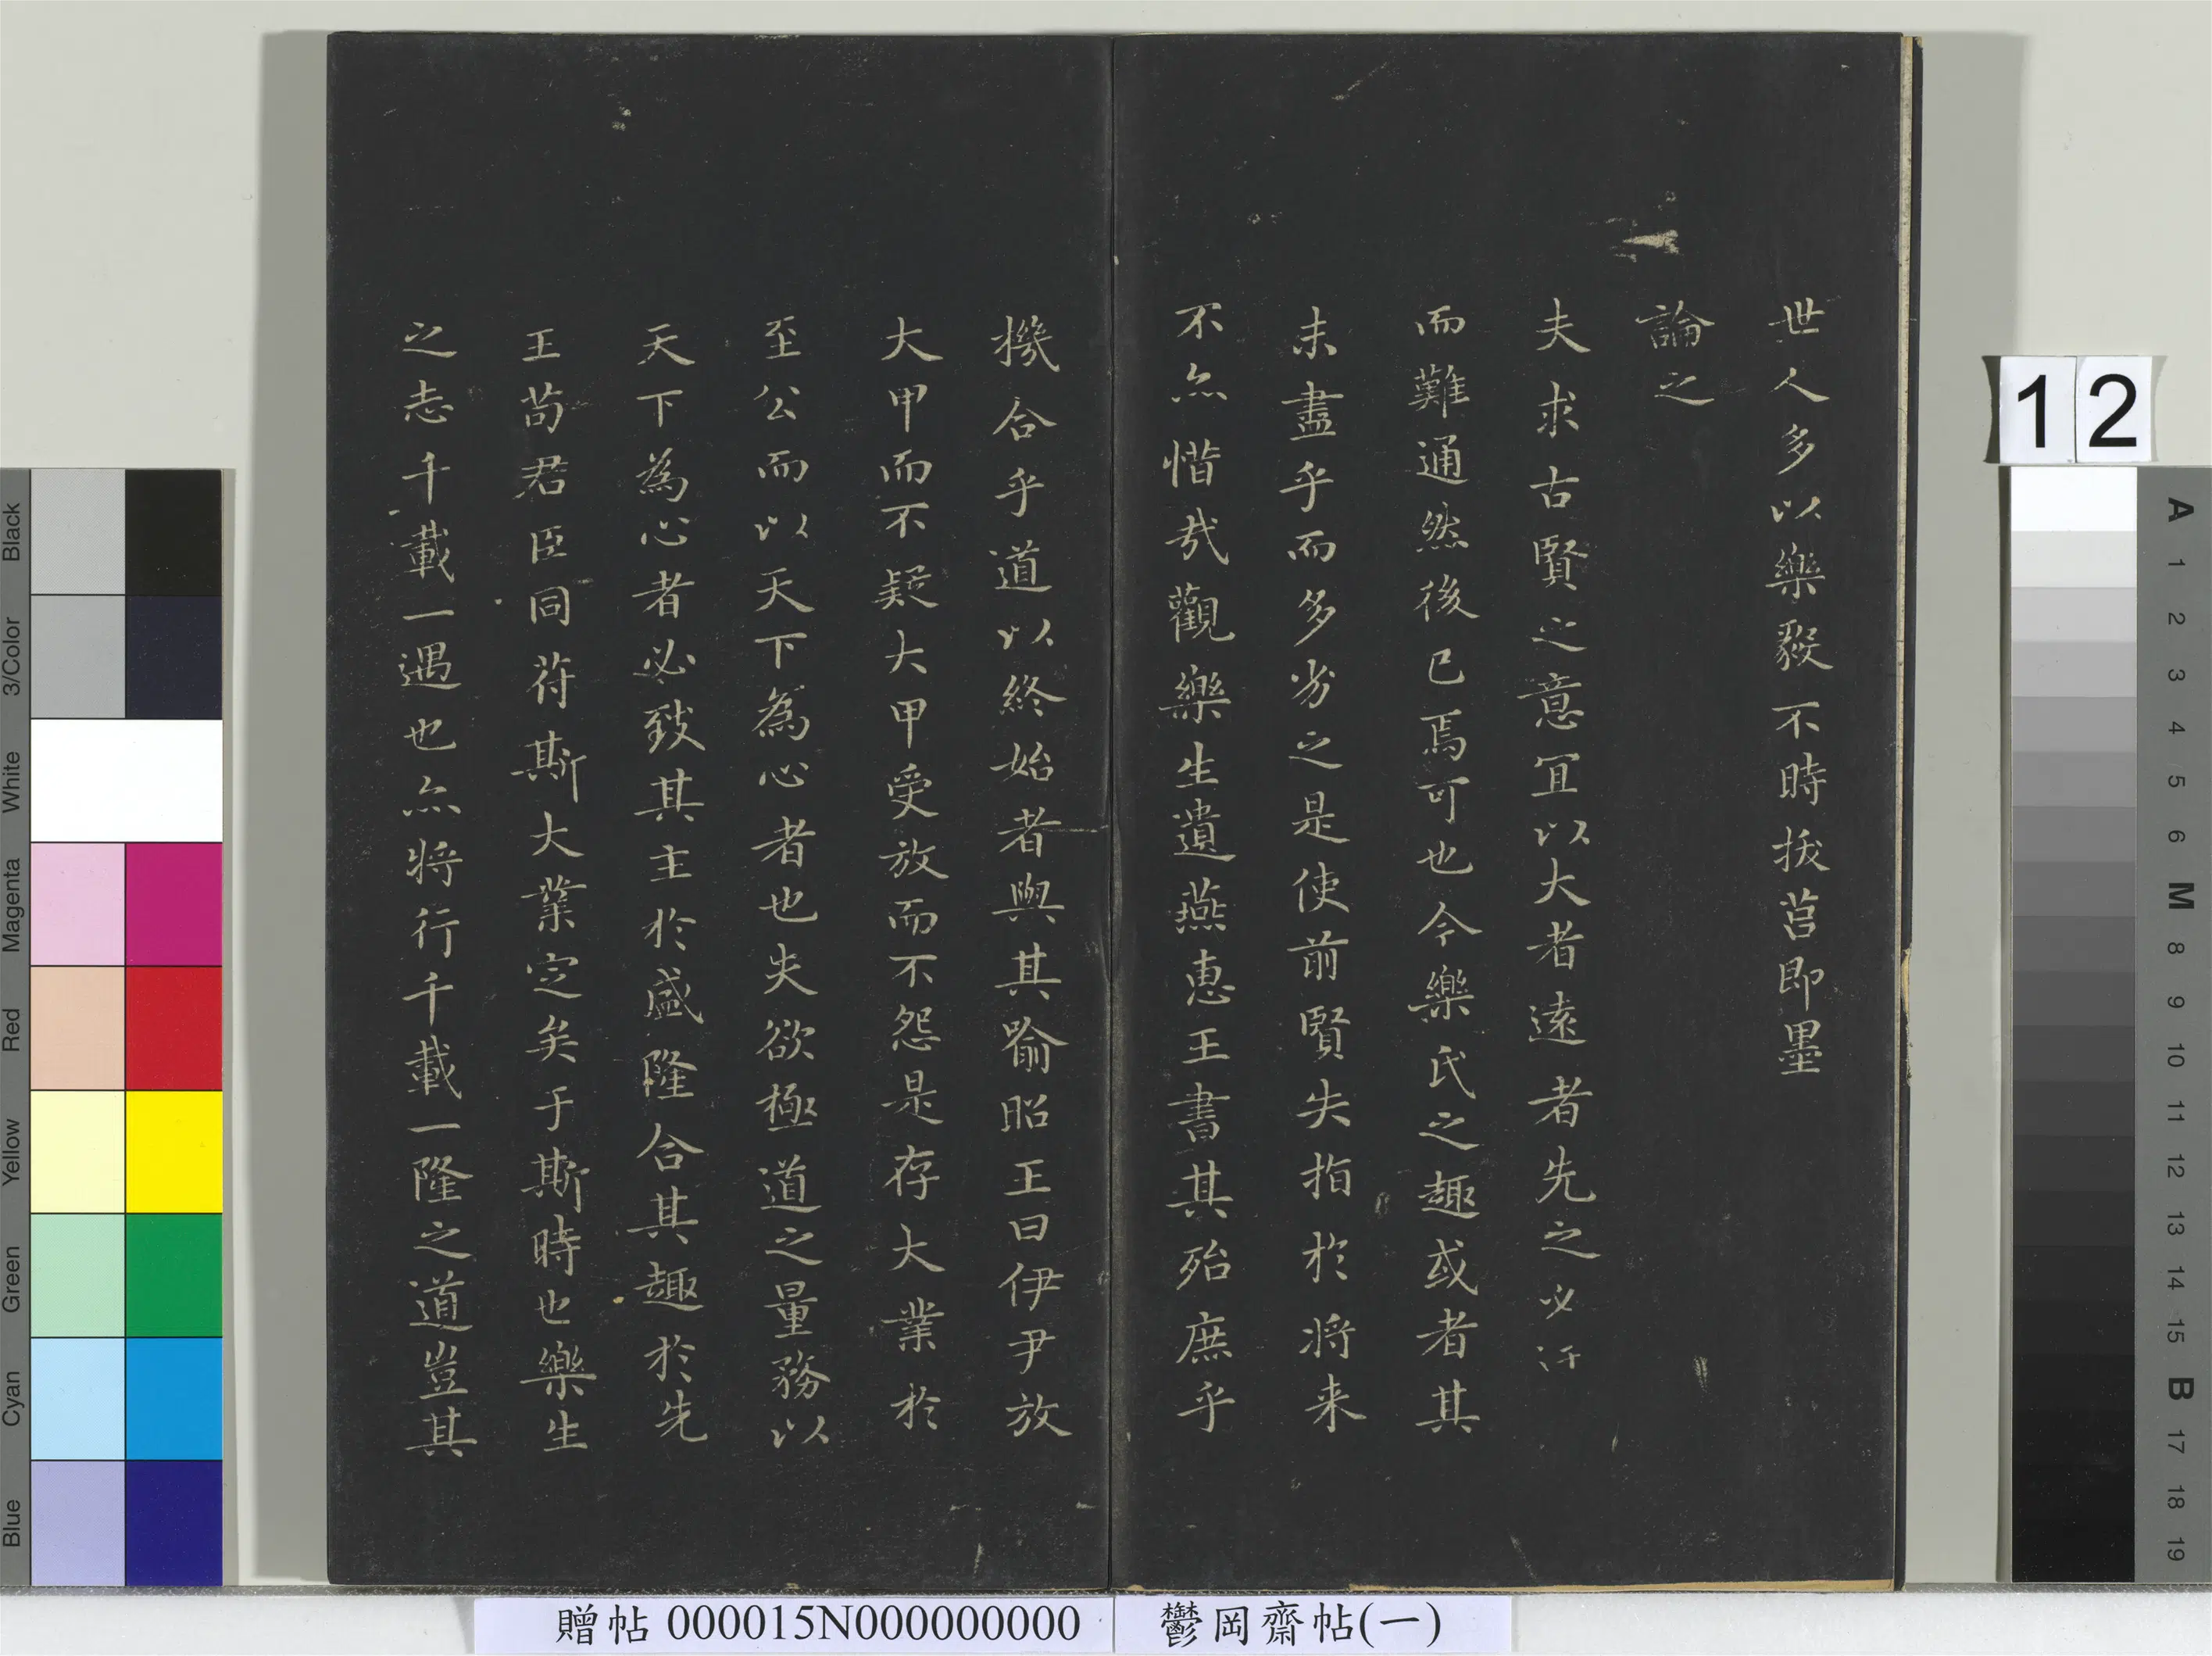 世人多以樂毅不時拔莒即墨
論之
夫求古賢之意宜以大者遠者先之必迂
而難通然後已焉可也今樂氏之趣或者其
未盡乎而多劣之是使前賢失指於將来
不亦惜哉觀樂生遺燕惠王書其殆庶乎
機合乎道以終始者與其喻昭王曰伊尹放
大甲而不疑大甲受放而不怨是存大業於
至公而以天下為心者也夫欲極道之量務以
天下為心者必致其主於盛隆合其趣於先
王苟君臣同符斯大業定矣于斯時也樂生
之志千載一遇也亦將行千載一隆之道豈其
贈帖 000015N000000000
鬱岡齋帖(一)
12
Black
3/Color
White
Magenta
Red
Yellow
Green
Cyan
Blue
A 1 2 3 4 5 6 M 8 9 10 11 12 13 14 15 B 17 18 19